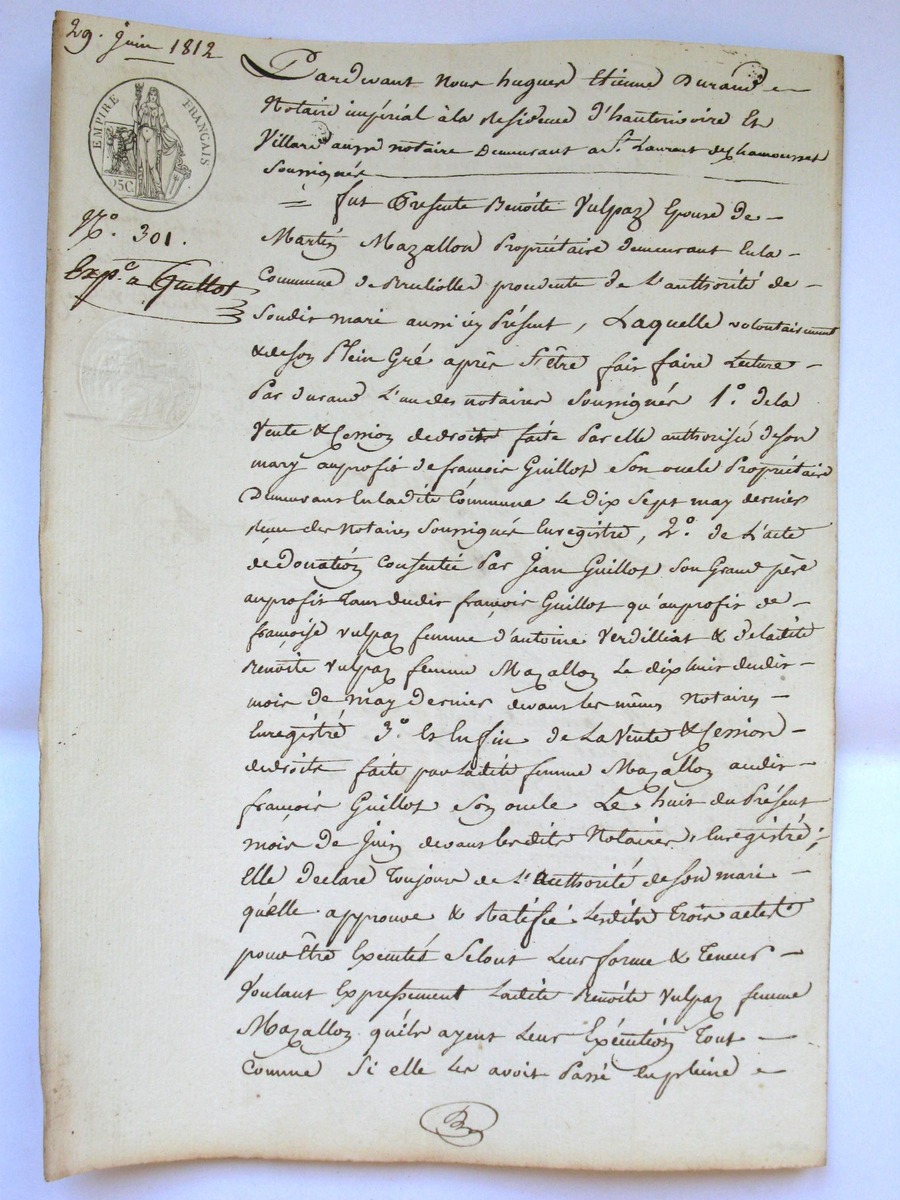 29. juin 1812
EMPIRE FRANÇAIS
25C
N.o 301.
Exp.e a Guillot
Pardevant Nous hugues Etienne Durand
Notaire impérial à la Residence d'hauterivoire Et
Villard aussi notaire Demeurant a St. Laurent de chamousset
Soussignés
fut Presente Benoite Vulpaz Epouse de
Martin Mazallon Propriétaire demeurant En la
Commune de Brullolles procedente de L'authorité de
Soudit mari aussi icy Présent, Laquelle volontairement
& de son Plein Gré après S'être fait faire Lecture
Par durand L'un des notaires Soussignés 1.o de la
Vente & Cession de droits faite Par elle authorisée de son
mary au profit de françois Guillot Son oncle Propriétaire
Demeurant En ladite Commune Le dix Sept may dernier
devant les Notaires Soussignés Enregistré, 2.o de L'acte
de Donation Consentie Par Jean Guillot Son Grand père
au profit Tant dudit françois Guillot qu'au profit de
françoise Vulpaz femme d'antoine Verdilliat & de ladite
Benoite Vulpaz femme Mazallon Le dix huit dudit
mois de may Dernier devant les mêmes Notaires
Enregistré 3.o Et Enfin de La Vente & Cession
de droits faite par Ladite femme Mazallon audit
françois Guillot Son oncle Le huit du Présent
mois de Juin devant lesdits Notaires, Enregistré;
Elle declare Toujours de L'authorité de Son mari
qu'elle approuve & Ratifie Lesdits Trois actes
pour Être Executés Selont Leur forme & Teneur
Voulant Expressement Ladite Benoite Vulpaz femme
Mazallon qu'ils ayent Leur Exécution Tout
Comme Si elle Les avoit Passé En pleine